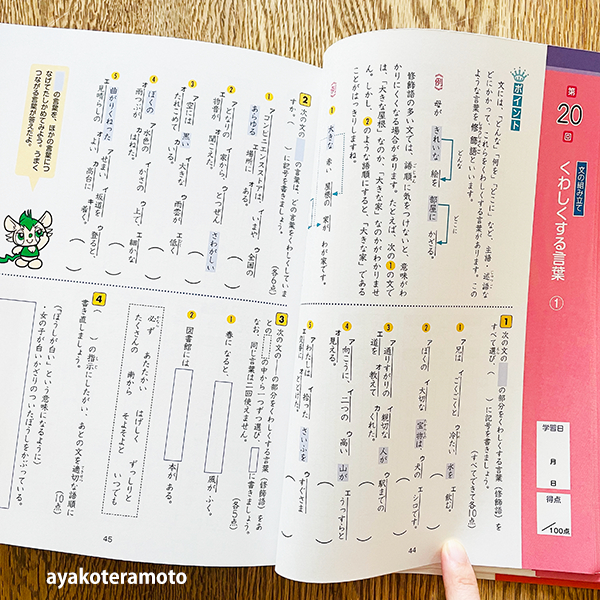 第
20
回
文の組み立て
くわしくする言葉 ①
学習日
月
日
得点
/100点
ポイント
文には、「どんな」「何を」「どこに」など、主語・述語な
どにかかって、これらをくわしくする言葉があります。この
ような言葉を修飾語といいます。
(例) 母が きれいな 絵を 部屋に かざる。
どんな
どこに
修飾語の多い文では、語順に気をつけないと、意味がわ
かりにくくなる場合があります。たとえば、次の❶の文で
は、「大きな屋根」なのか、「大きな家」なのかがわかりませ
ん。しかし、❷のような語順にすると、「大きな家」である
ことがはっきりしますね。
(例)
❶ 大きな 赤い 屋根の 家が わが家です。
1 次の文の の部分をくわしくする言葉(修飾語)を
すべて選び、( )に記号を書きましょう。
(すべてできて各10点)
① ア兄は イごくごくと ウ冷たい 水を エ飲む。
② アぼくの イ大切な 宝物は ウ犬の エシロです。
③ ア通りすがりの イ親切な 人が ウ駅までの
エ道を オ教えて カくれた。
④ ア向こうに、 イ二つの ウ高い 山が エうっすらと
オ見える。
⑤ アわたしは イ拾った さいふを ウすぐさま
44
2 次の文の の言葉は、どの言葉をくわしくしていま
すか。( )に記号を書きましょう。
(各6点)
① アコンビニエンスストアは、 イいまや ウ全国の
あらゆる エ場所に オある。
② アとなりの イ家から、 ウとつぜん さわがしい
エ物音が オ聞こえた。
③ ア空には 黒い イ大きな ウ雨雲が エ低く
オたれこめて カいる。
④ ぼくの ア水色の イかさの ウ上で エ細かな
オ雨つぶが カおどる。
⑤ 曲がりくねった アせまい イ坂道を ウ登ると、
エ見晴らしの オよい カ高台に キ着く。
の言葉を、ほかの言葉につ
なげてたしかめてみよう。うまく
つながる言葉が答えだよ。
3 次の文の の部分をくわしくする言葉(修飾語)を、あ
との の中から一つずつ選び、 に書きましょう。
なお、同じ言葉は二回使えません。
(各5点)
① 春になると、
風がふく。
② 図書館には
本がある。
必ず あたたかい はげしく ずっしりと
たくさんの 南から そよそよと いつでも
4 ( )の指示にしたがい、あとの文を適切な語順に
書き直しましょう。
(10点)
(「ぼうしが白い」という意味になるように)
・女の子が白いかざりのついたぼうしをかぶっている。
45
ayakoteramoto